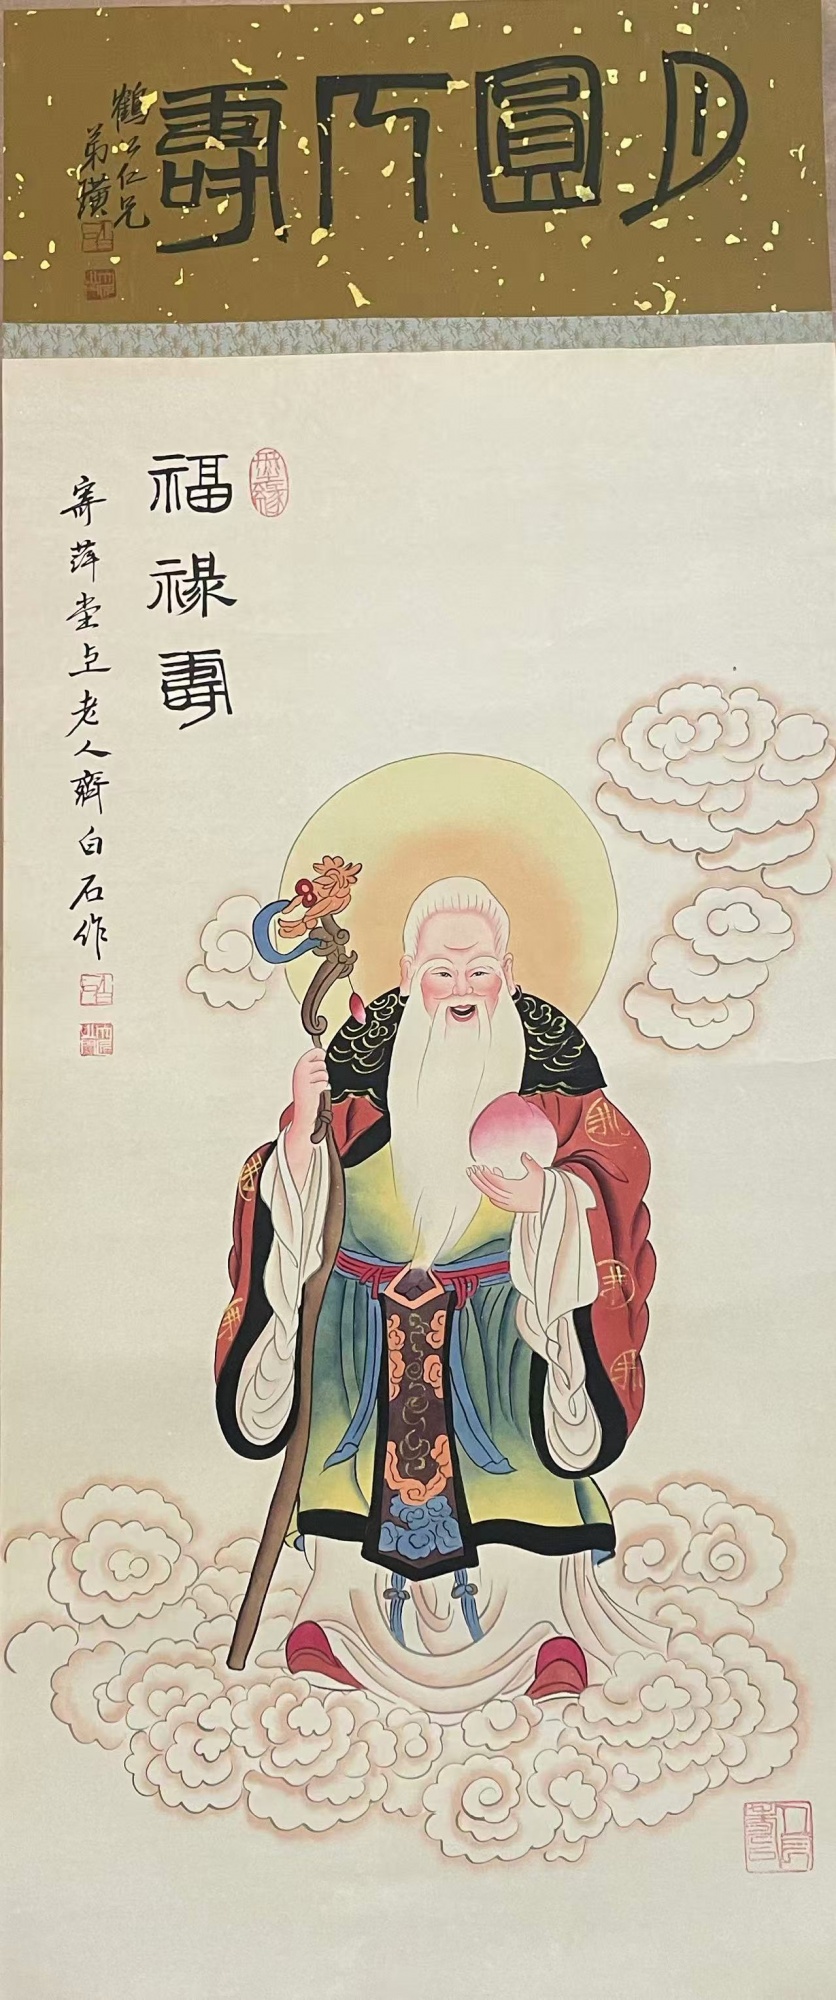 月圓人壽
鶴公仁兄
弟璜
福祿壽
寄萍堂上老人齊白石作